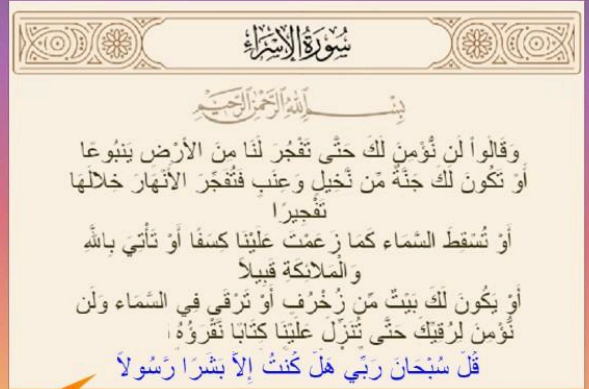 سُورَةُ الإِسْرَاءِ
بِسْمِ اللَّهِ الرَّحْمَٰنِ الرَّحِيمِ
وَقَالُواْ لَن نُّؤْمِنَ لَكَ حَتَّى تَفْجُرَ لَنَا مِنَ الأَرْضِ يَنبُوعًا
أَوْ تَكُونَ لَكَ جَنَّةٌ مِّن نَّخِيلٍ وَعِنَبٍ فَتُفَجِّرَ الأَنْهَارَ خِلالَهَا
تَفْجِيرًا
أَوْ تُسْقِطَ السَّمَاء كَمَا زَعَمْتَ عَلَيْنَا كِسَفًا أَوْ تَأْتِيَ بِاللّهِ
وَالْمَلآئِكَةِ قَبِيلاً
أَوْ يَكُونَ لَكَ بَيْتٌ مِّن زُخْرُفٍ أَوْ تَرْقَى فِي السَّمَاء وَلَن
نُّؤْمِنَ لِرُقِيِّكَ حَتَّى تُنَزِّلَ عَلَيْنَا كِتَابًا نَّقْرَؤُهُ
قُلْ سُبْحَانَ رَبِّي هَلْ كُنتُ إِلاَّ بَشَرًا رَّسُولاً